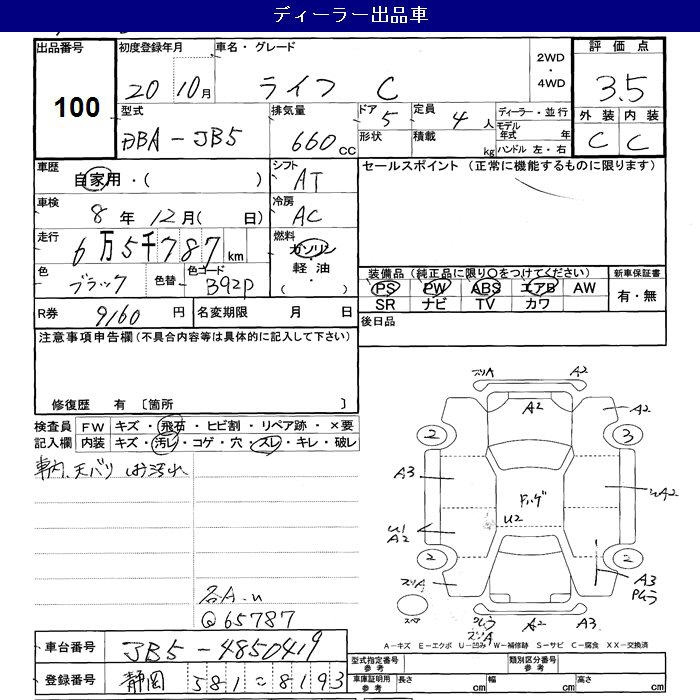 ディーラー出品車
出品番号
100
初度登録年月
20 10月
車名・グレード
ライフ C
2WD
・
4WD
評価点
3.5
外装 内装
C C
型式
DBA-JB5
排気量
660cc
ドア
5
形状
定員
4人
積載
kg
ディーラー・並行
モデル年式 年
ハンドル 左・右
車歴
自家用・( )
シフト
AT
セールスポイント (正常に機能するものに限ります)
車検
8年12月( 日)
冷房
AC
走行
6万5千787km
燃料
ガソリン
・
軽油
( ・ )
色
ブラック
色替
色コード
B92P
装備品(純正品に限り○をつけてください)
PS PW ABS エアB AW
SR ナビ TV カワ
新車保証書
有・無
R券
9160円
名変期限 月 日
後日品
注意事項申告欄(不具合内容等は具体的に記入して下さい)
修復歴 有 〔箇所 〕
検査員
記入欄
FW キズ・飛石・ヒビ割・リペア跡・×要
内装 キズ・汚レ・コゲ・穴・スレ・キレ・破レ
車内、天バリ 汚れ
A.u
Q65787
ズリA A2
A2
A2
2 3
A3
ドノーゲ
U2
U1
A2
2 2
ズリA
スペア
A3
Pムラ
Pムラ
ズリA
A2
A3
A-キズ E-エクボ U-凹み W-補修跡 S-サビ C-腐食 XX-交換済
車台番号
JB5-4850419
登録番号
静岡 581 = 8193
型式指定番号
参考
類別区分番号
参考
車庫証明用
参考
長さ cm
幅 cm
高さ cm